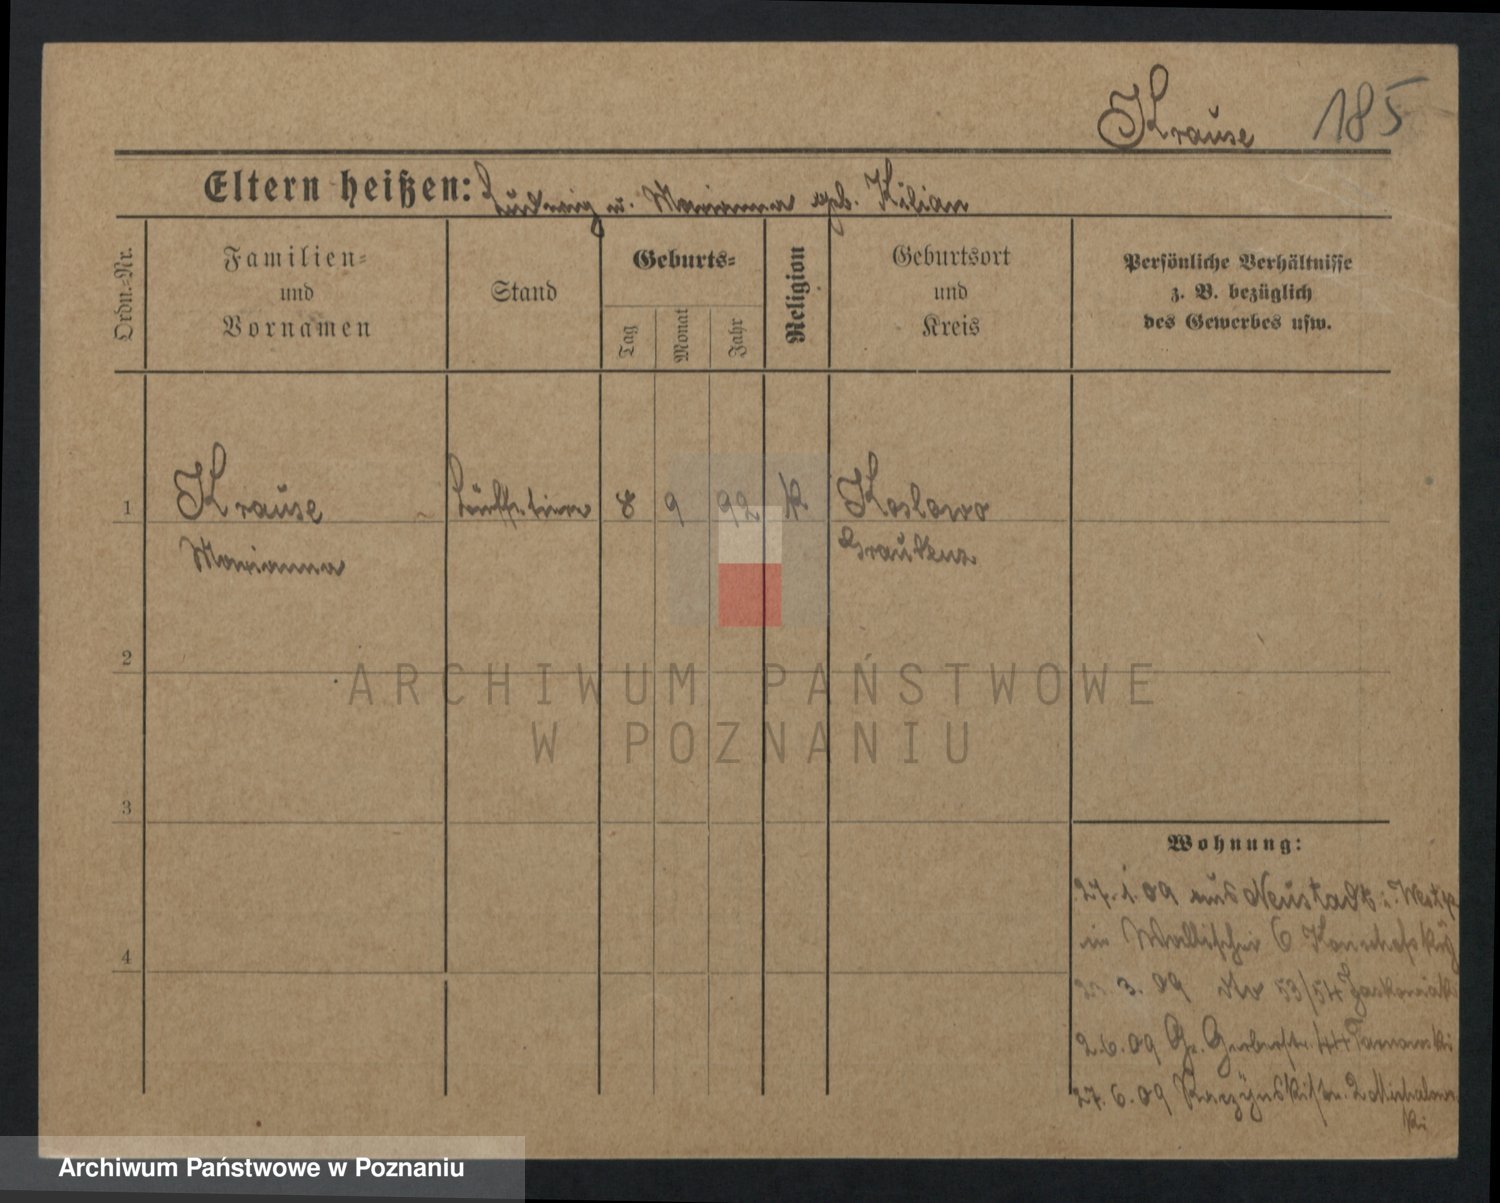 Krause 185
Eltern heißen: Ludwig u. Marianna geb. Kilian
Ordn.-Nr.
Familien-
und
Vornamen
Stand
Geburts-
Tag
Monat
Jahr
Religion
Geburtsort
und
Kreis
Persönliche Verhältnisse
z. B. bezüglich
des Gewerbes usw.
1 Krause 8 9 92 k Koslowo
Marianna Graudenz
2
ARCHIWUM PAŃSTWOWE
W POZNANIU
3
Wohnung:
27.1.09 aus Neustadt i. Westp
in Wallischei 6
4
3. 09 53/54
2.6.09 Gr. Gerberstr. 44
27.6.09 Raczynskistr. 2 Michalows
ki
Archiwum Państwowe w Poznaniu